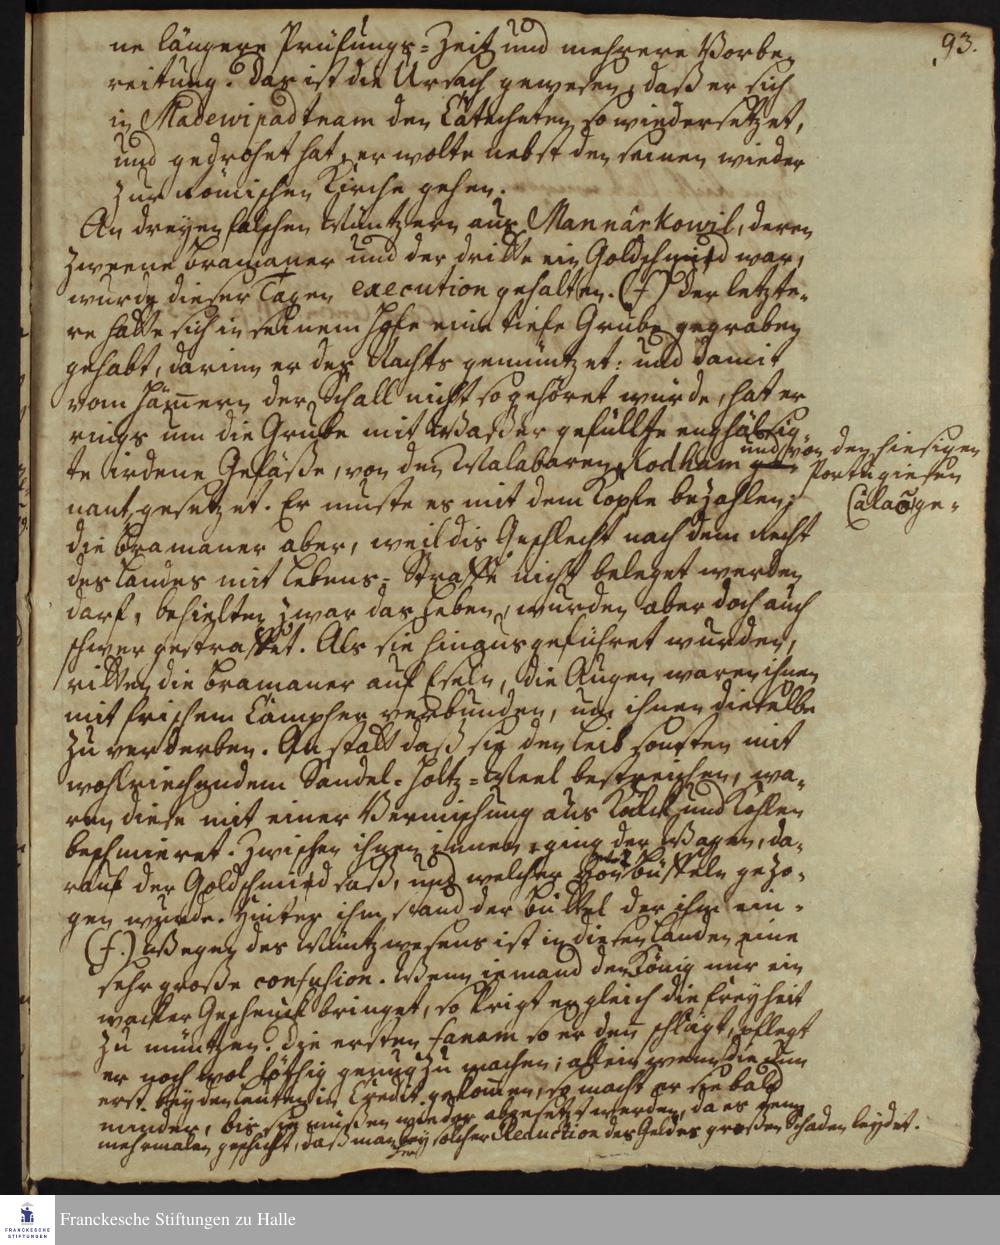 93.
ne längere Prüfungs-Zeit und mehrere Vorbe-
reitung. Das ist die Ursach gewesen, daß er sich
in Madewipadnam den Catecheten so wiedersetzet,
und gedrohet hat, er wolte nebst den seinen wieder
zur Römischen Kirche gehen.
An dreyen falschen Müntzern aus Mannárkowil, deren
zweene Bramaner und der dritte ein Goldschmied war,
wurde dieser Tagen execution gehalten. (f) Der letzte-
re hatte sich in seinem Hofe eine tiefe Grube gegraben
gehabt, darinn er des Nachts gemüntzet: und damit
vom Ham̄ern der Schall nicht so gehöret würde, hat er
rings um die Grube mit Waßer gefüllte enghälsig-
te irdene Gefäße, von den Malabaren Kodham
und von den hiesigen
Portugiesen
Calaõ ge-
nant, gesetzet. Er muste es mit dem Kopfe bezahlen;
die Bramaner aber, weil dis Geschlecht nach dem Recht
des Landes mit Lebens-Straffe nicht beleget werden
darf, behielten zwar das Leben, wurden aber doch auch
schwer gestraffet. Als sie hinausgeführet wurden,
ritten die Bramaner auf Eseln, die Augen waren ihnen
mit frischem Campher verbunden, um ihnen dieselbe
zu verderben. Anstatt daß sie den Leib sonsten mit
wohlriechendem Sandel-Holtz-Meel bestreichen, wa-
ren diese mit einer Vermischung aus Kalck und Kohlen
beschmieret. Zwischen ihnen innen ging der Wagen, da-
rauf der Goldschmied saß, und welcher von Büffeln gezo-
gen wurde. Hinter ihm stand der Büttel der ihm ein-
(f.) Wegen des Müntzwesens ist in diesen Landen eine
sehr große confusion. Wenn iemand dem König nur ein
wacker Geschenck bringet, so krigt er gleich die Freyheit
zu müntzen. Die ersten fanam so er den̄ schlägt, pflegt
er noch wol löthig genug zu machen; allein wenn die nun
erst bey den Leuten in Credit gekom̄en, so macht er sie bald
minder, bis sie müßen wieder abgesetzt werden, da es denn
mehrmalen geschicht, daß man bey solcher Reduction des Geldes großen Schaden leydet.
Franckesche Stiftungen zu Halle
FRANCKESCHE
STIFTUNGEN